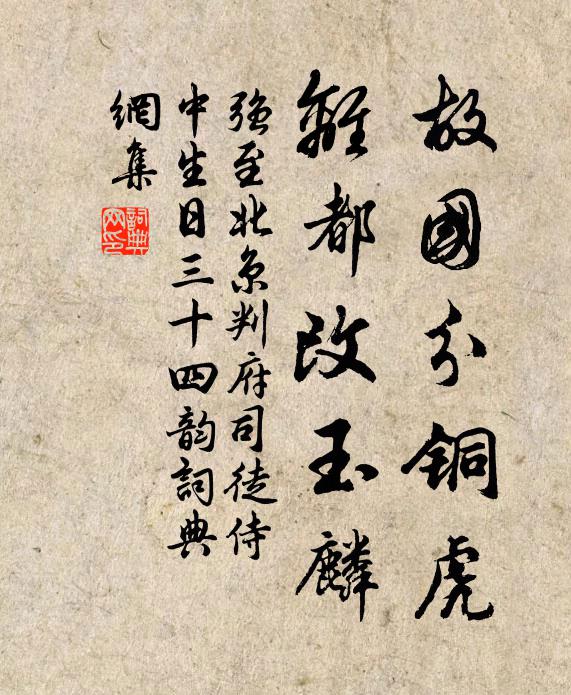 故國分銅虎
離都改玉麟
強至北京判府司徒侍
中生日三十四韵詞典
網集
詞典
网印